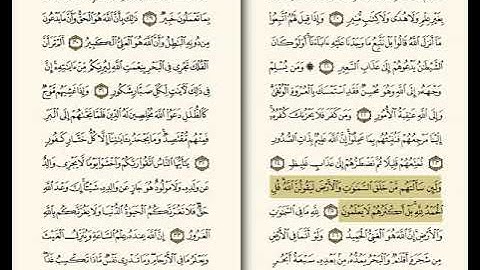 بِغَيْرِ عِلْمٍ وَلَا هُدًى وَلَا كِتَٰبٍ مُّنِيرٍ ٢٠ وَإِذَا قِيلَ لَهُمُ ٱتَّبِعُوا۟
مَآ أَنزَلَ ٱللَّهُ قَالُوا۟ بَلْ نَتَّبِعُ مَا وَجَدْنَا عَلَيْهِ ءَابَآءَنَآ أَوَلَوْ كَانَ
ٱلشَّيْطَٰنُ يَدْعُوهُمْ إِلَىٰ عَذَابِ ٱلسَّعِيرِ ٢١ ۞ وَمَن يُسْلِمْ
وَجْهَهُۥٓ إِلَى ٱللَّهِ وَهُوَ مُحْسِنٌ فَقَدِ ٱسْتَمْسَكَ بِٱلْعُرْوَةِ ٱلْوُثْقَىٰ
وَإِلَى ٱللَّهِ عَٰقِبَةُ ٱلْأُمُورِ ٢٢ وَمَن كَفَرَ فَلَا يَحْزُنكَ كُفْرُهُۥٓ
إِلَيْنَا مَرْجِعُهُمْ فَنُنَبِّئُهُم بِمَا عَمِلُوٓا۟ إِنَّ ٱللَّهَ عَلِيمٌۢ بِذَاتِ ٱلصُّدُورِ
٢٣ نُمَتِّعُهُمْ قَلِيلًا ثُمَّ نَضْطَرُّهُمْ إِلَىٰ عَذَابٍ غَلِيظٍ ٢٤
وَلَئِن سَأَلْتَهُم مَّنْ خَلَقَ ٱلسَّمَٰوَٰتِ وَٱلْأَرْضَ لَيَقُولُنَّ ٱللَّهُ قُلِ
ٱلْحَمْدُ لِلَّهِ بَلْ أَكْثَرُهُمْ لَا يَعْلَمُونَ ٢٥ لِلَّهِ مَا فِى ٱلسَّمَٰوَٰتِ
وَٱلْأَرْضِ إِنَّ ٱللَّهَ هُوَ ٱلْغَنِىُّ ٱلْحَمِيدُ ٢٦ وَلَوْ أَنَّمَا فِى ٱلْأَرْضِ
مِن شَجَرَةٍ أَقْلَٰمٌ وَٱلْبَحْرُ يَمُدُّهُۥ مِنۢ بَعْدِهِۦ سَبْعَةُ أَبْحُرٍ
بِمَا تَعْمَلُونَ خَبِيرٌ ٢٩ ذَٰلِكَ بِأَنَّ ٱللَّهَ هُوَ ٱلْحَقُّ وَأَنَّ مَا يَدْعُونَ
مِن دُونِهِ ٱلْبَٰطِلُ وَأَنَّ ٱللَّهَ هُوَ ٱلْعَلِىُّ ٱلْكَبِيرُ ٣٠ أَلَمْ تَرَ أَنَّ
ٱلْفُلْكَ تَجْرِى فِى ٱلْبَحْرِ بِنِعْمَتِ ٱللَّهِ لِيُرِيَكُم مِّنْ ءَايَٰتِهِۦٓ إِنَّ
فِى ذَٰلِكَ لَءَايَٰتٍ لِّكُلِّ صَبَّارٍ شَكُورٍ ٣١ وَإِذَا غَشِيَهُم مَّوْجٌ
كَٱلظُّلَلِ دَعَوُا۟ ٱللَّهَ مُخْلِصِينَ لَهُ ٱلدِّينَ فَلَمَّا نَجَّىٰهُمْ إِلَى ٱلْبَرِّ
فَمِنْهُم مُّقْتَصِدٌ وَمَا يَجْحَدُ بِـَٔايَٰتِنَآ إِلَّا كُلُّ خَتَّارٍ كَفُورٍ
٣٢ يَٰٓأَيُّهَا ٱلنَّاسُ ٱتَّقُوا۟ رَبَّكُمْ وَٱخْشَوْا۟ يَوْمًا لَّا يَجْزِى وَالِدٌ
عَن وَلَدِهِۦ وَلَا مَوْلُودٌ هُوَ جَازٍ عَن وَالِدِهِۦ شَيْـًٔا إِنَّ وَعْدَ ٱللَّهِ
حَقٌّ فَلَا تَغُرَّنَّكُمُ ٱلْحَيَوٰةُ ٱلدُّنْيَا وَلَا يَغُرَّنَّكُم بِٱللَّهِ
ٱلْغَرُورُ ٣٣ إِنَّ ٱللَّهَ عِندَهُۥ عِلْمُ ٱلسَّاعَةِ وَيُنَزِّلُ ٱلْغَيْثَ
وَيَعْلَمُ مَا فِى ٱلْأَرْحَامِ وَمَا تَدْرِى نَفْسٌ مَّاذَا تَكْسِبُ غَدًا